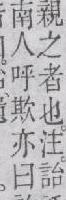 親之者也。注詒
南人呼欺亦曰